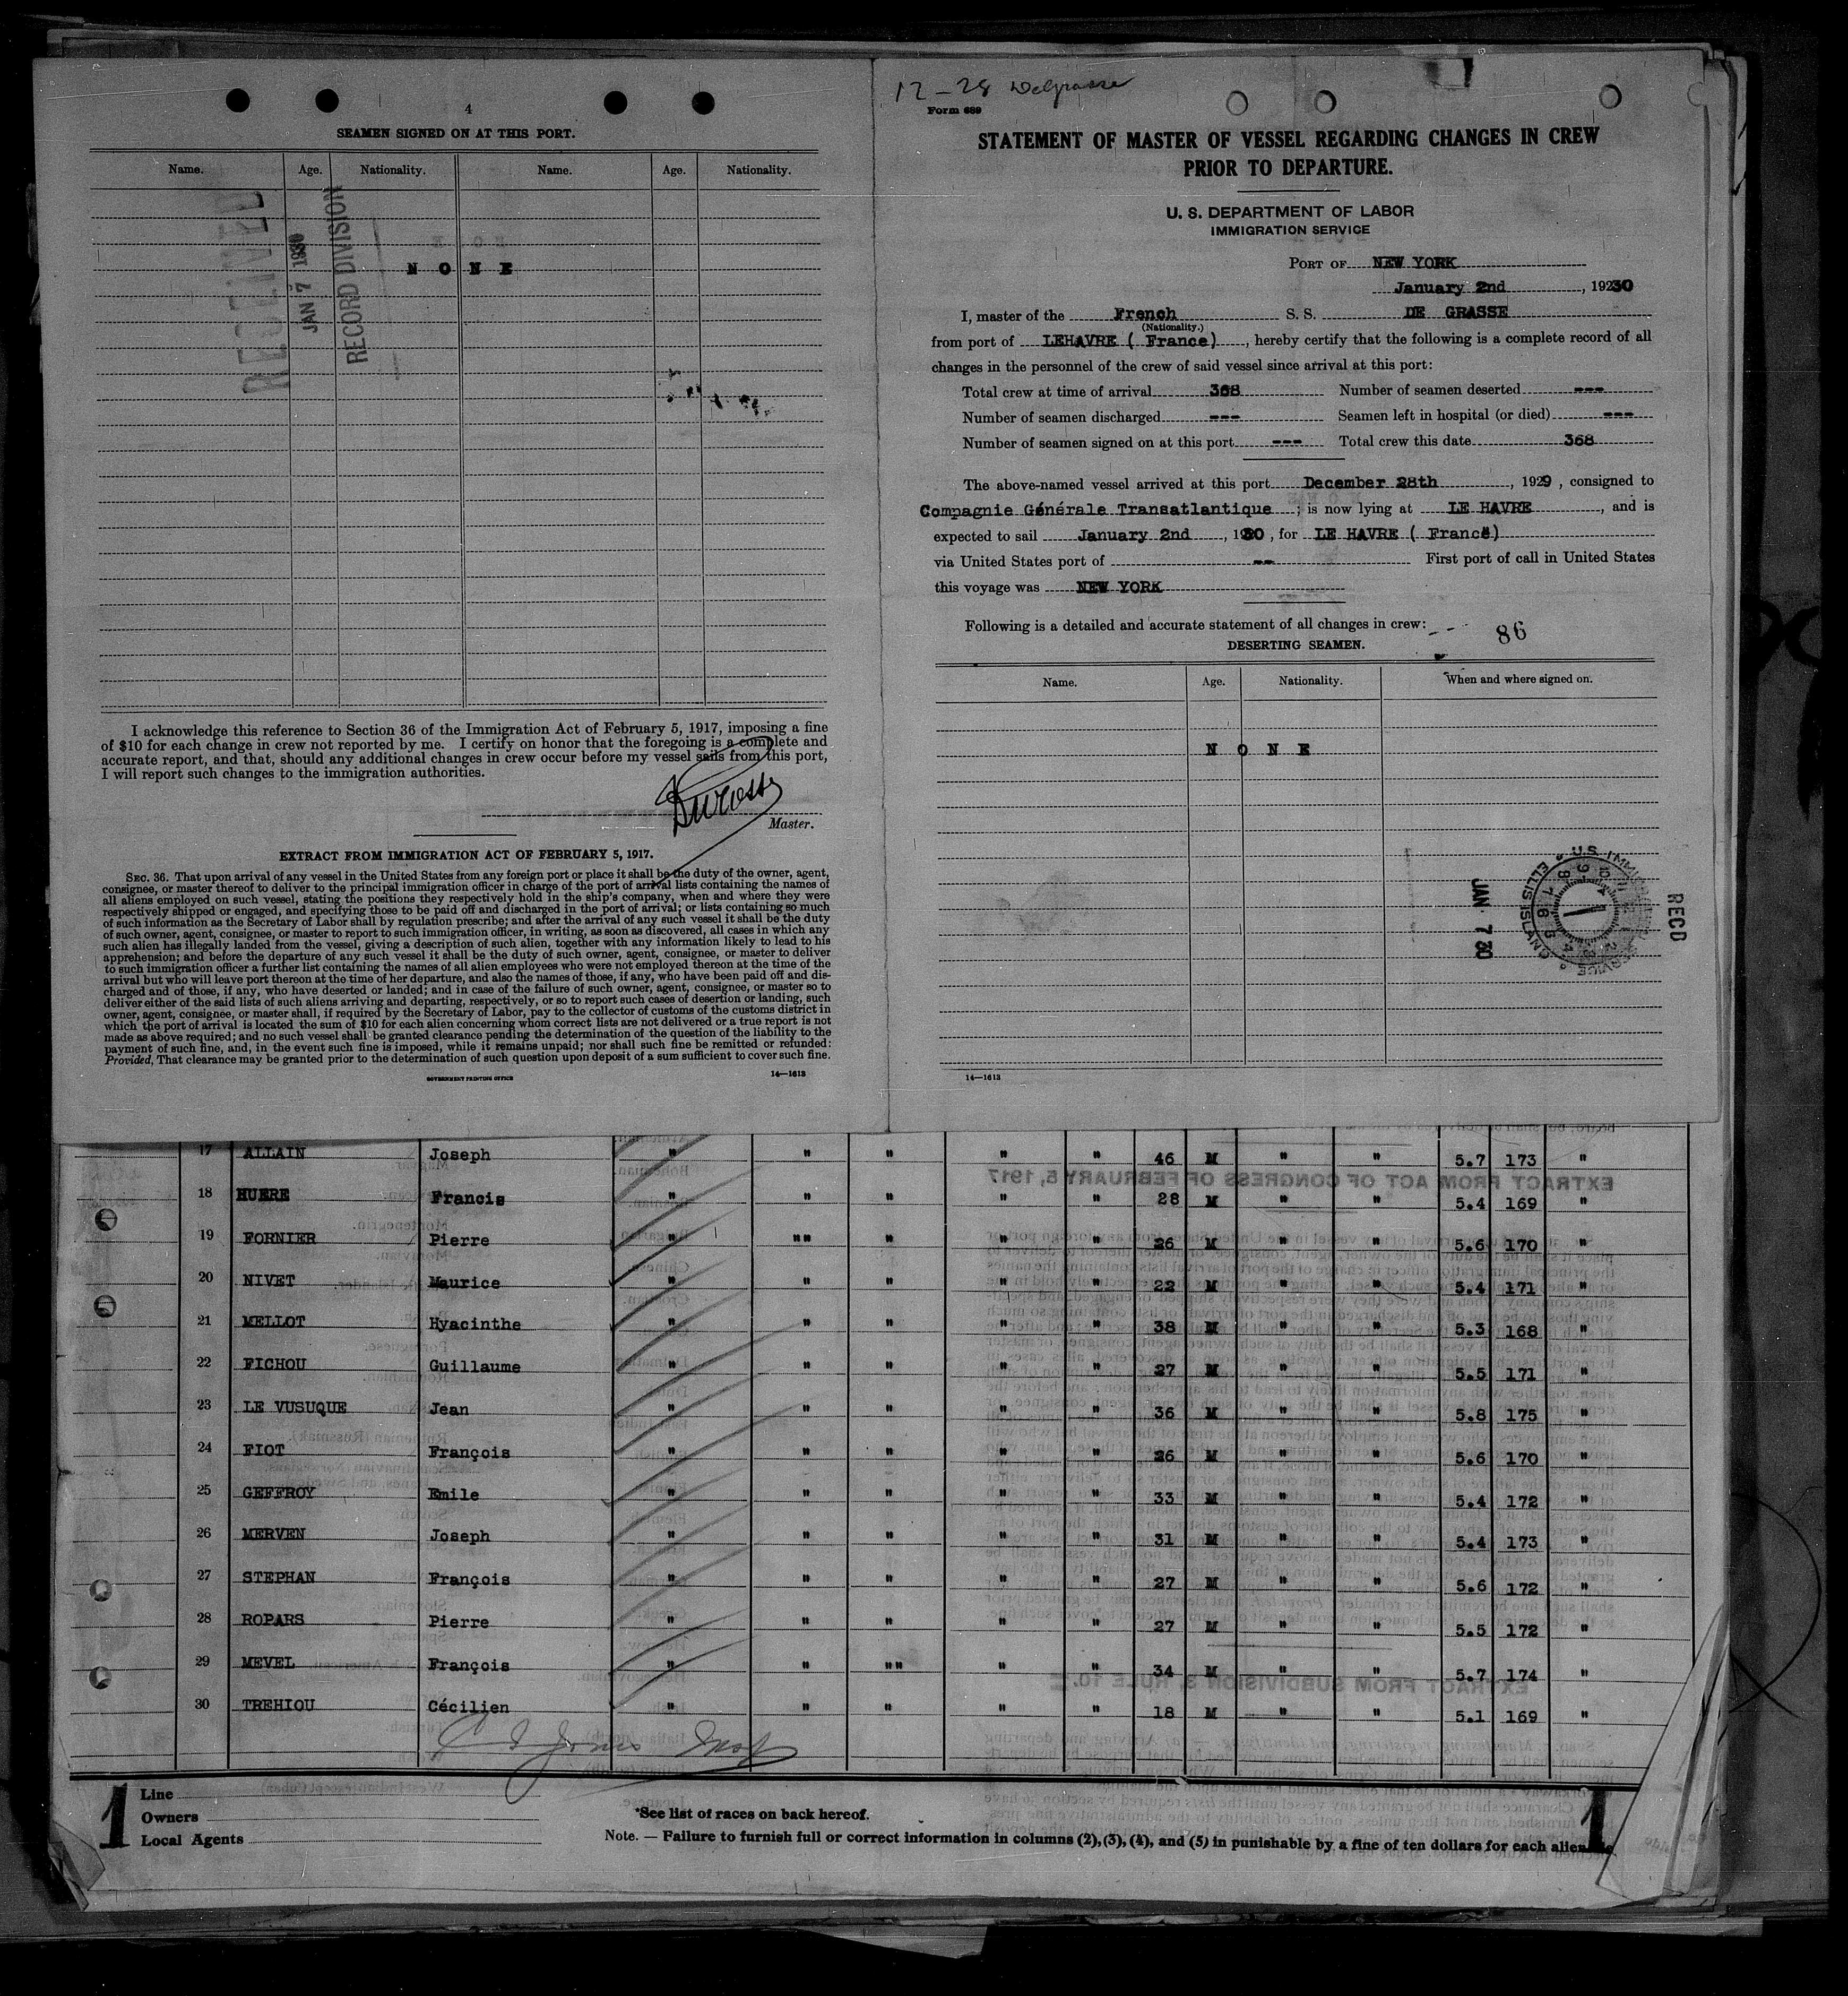 4
SEAMEN SIGNED ON AT THIS PORT.
Name. Age. Nationality. Name. Age. Nationality.
RECEIVED
JAN 7 1930
RECORD DIVISION
N O N E
I acknowledge this reference to Section 36 of the Immigration Act of February 5, 1917, imposing a fine
of $10 for each change in crew not reported by me. I certify on honor that the foregoing is a complete and
accurate report, and that, should any additional changes in crew occur before my vessel sails from this port,
I will report such changes to the immigration authorities.
Master.
EXTRACT FROM IMMIGRATION ACT OF FEBRUARY 5, 1917.
SEC. 36. That upon arrival of any vessel in the United States from any foreign port or place it shall be the duty of the owner, agent,
consignee, or master thereof to deliver to the principal immigration officer in charge of the port of arrival lists containing the names of
all aliens employed on such vessel, stating the positions they respectively hold in the ship's company, when and where they were
respectively shipped or engaged, and specifying those to be paid off and discharged in the port of arrival; or lists containing so much
of such information as the Secretary of Labor shall by regulation prescribe; and after the arrival of any such vessel it shall be the duty
of such owner, agent, consignee, or master to report to such immigration officer, in writing, as soon as discovered, all cases in which any
such alien has illegally landed from the vessel, giving a description of such alien, together with any information likely to lead to his
apprehension; and before the departure of any such vessel it shall be the duty of such owner, agent, consignee, or master to deliver
to such immigration officer a further list containing the names of all alien employees who were not employed thereon at the time of the
arrival but who will leave port thereon at the time of her departure, and also the names of those, if any, who have been paid off and dis-
charged and of those, if any, who have deserted or landed; and in case of the failure of such owner, agent, consignee, or master so to
deliver either of the said lists of such aliens arriving and departing, respectively, or so to report such cases of desertion or landing, such
owner, agent, consignee, or master shall, if required by the Secretary of Labor, pay to the collector of customs of the customs district in
which the port of arrival is located the sum of $10 for each alien concerning whom correct lists are not delivered or a true report is not
made as above required; and no such vessel shall be granted clearance pending the determination of the question of the liability to the
payment of such fine, and, in the event such fine is imposed, while it remains unpaid; nor shall such fine be remitted or refunded:
Provided, That clearance may be granted prior to the determination of such question upon deposit of a sum sufficient to cover such fine.
GOVERNMENT PRINTING OFFICE 14—1613
12-28 DeGrasse
Form 689
STATEMENT OF MASTER OF VESSEL REGARDING CHANGES IN CREW
PRIOR TO DEPARTURE.
U. S. DEPARTMENT OF LABOR
IMMIGRATION SERVICE
PORT OF NEW YORK
January 2nd, 1930
I, master of the French S. S. DE GRASSE
(Nationality.)
from port of LEHAVRE ( France), hereby certify that the following is a complete record of all
changes in the personnel of the crew of said vessel since arrival at this port:
Total crew at time of arrival 368 Number of seamen deserted ---
Number of seamen discharged --- Seamen left in hospital (or died) ---
Number of seamen signed on at this port --- Total crew this date 368
The above-named vessel arrived at this port December 28th, 1929, consigned to
Compagnie Générale Transatlantique; is now lying at LE HAVRE, and is
expected to sail January 2nd, 1930, for LE HAVRE ( France)
via United States port of -- First port of call in United States
this voyage was NEW YORK
Following is a detailed and accurate statement of all changes in crew:
86
DESERTING SEAMEN.
Name. Age. Nationality. When and where signed on.
N O N E
U.S. IMMIGRATION SERVICE ELLIS ISLAND
JAN 7 30
RECD
14—1613
17 ALLAIN Joseph " " " " " 46 M " " 5.7 173 "
18 HUERE Francis " " " " " 28 M " " 5.4 169 "
19 FORNIER Pierre " "" " " " 26 M " " 5.6 170 "
20 NIVET Maurice " " " " " 22 M " " 5.4 171 "
21 MELLOT Hyacinthe " " " " " 38 M " " 5.3 168 "
22 FICHOU Guillaume " " " " " 27 M " " 5.5 171 "
23 LE VUSUQUE Jean " " " " " 36 M " " 5.8 175 "
24 FIOT François " " " " " 26 M " " 5.6 170 "
25 GEFFROY Emile " " " " " 33 M " " 5.4 172 "
26 MERVEN Joseph " " " " " 31 M " " 5.4 173 "
27 STEPHAN François " " " " " 27 M " " 5.6 172 "
28 ROPARS Pierre " " " " " 27 M " " 5.5 172 "
29 MEVEL François " " "" " " 34 M " " 5.7 174 "
30 TREHIOU Cécilien " " " " " 18 M " " 5.1 169 "
1 Line
Owners
Local Agents
*See list of races on back hereof.
Note. — Failure to furnish full or correct information in columns (2),(3),(4), and (5) in punishable by a fine of ten dollars for each alien
1